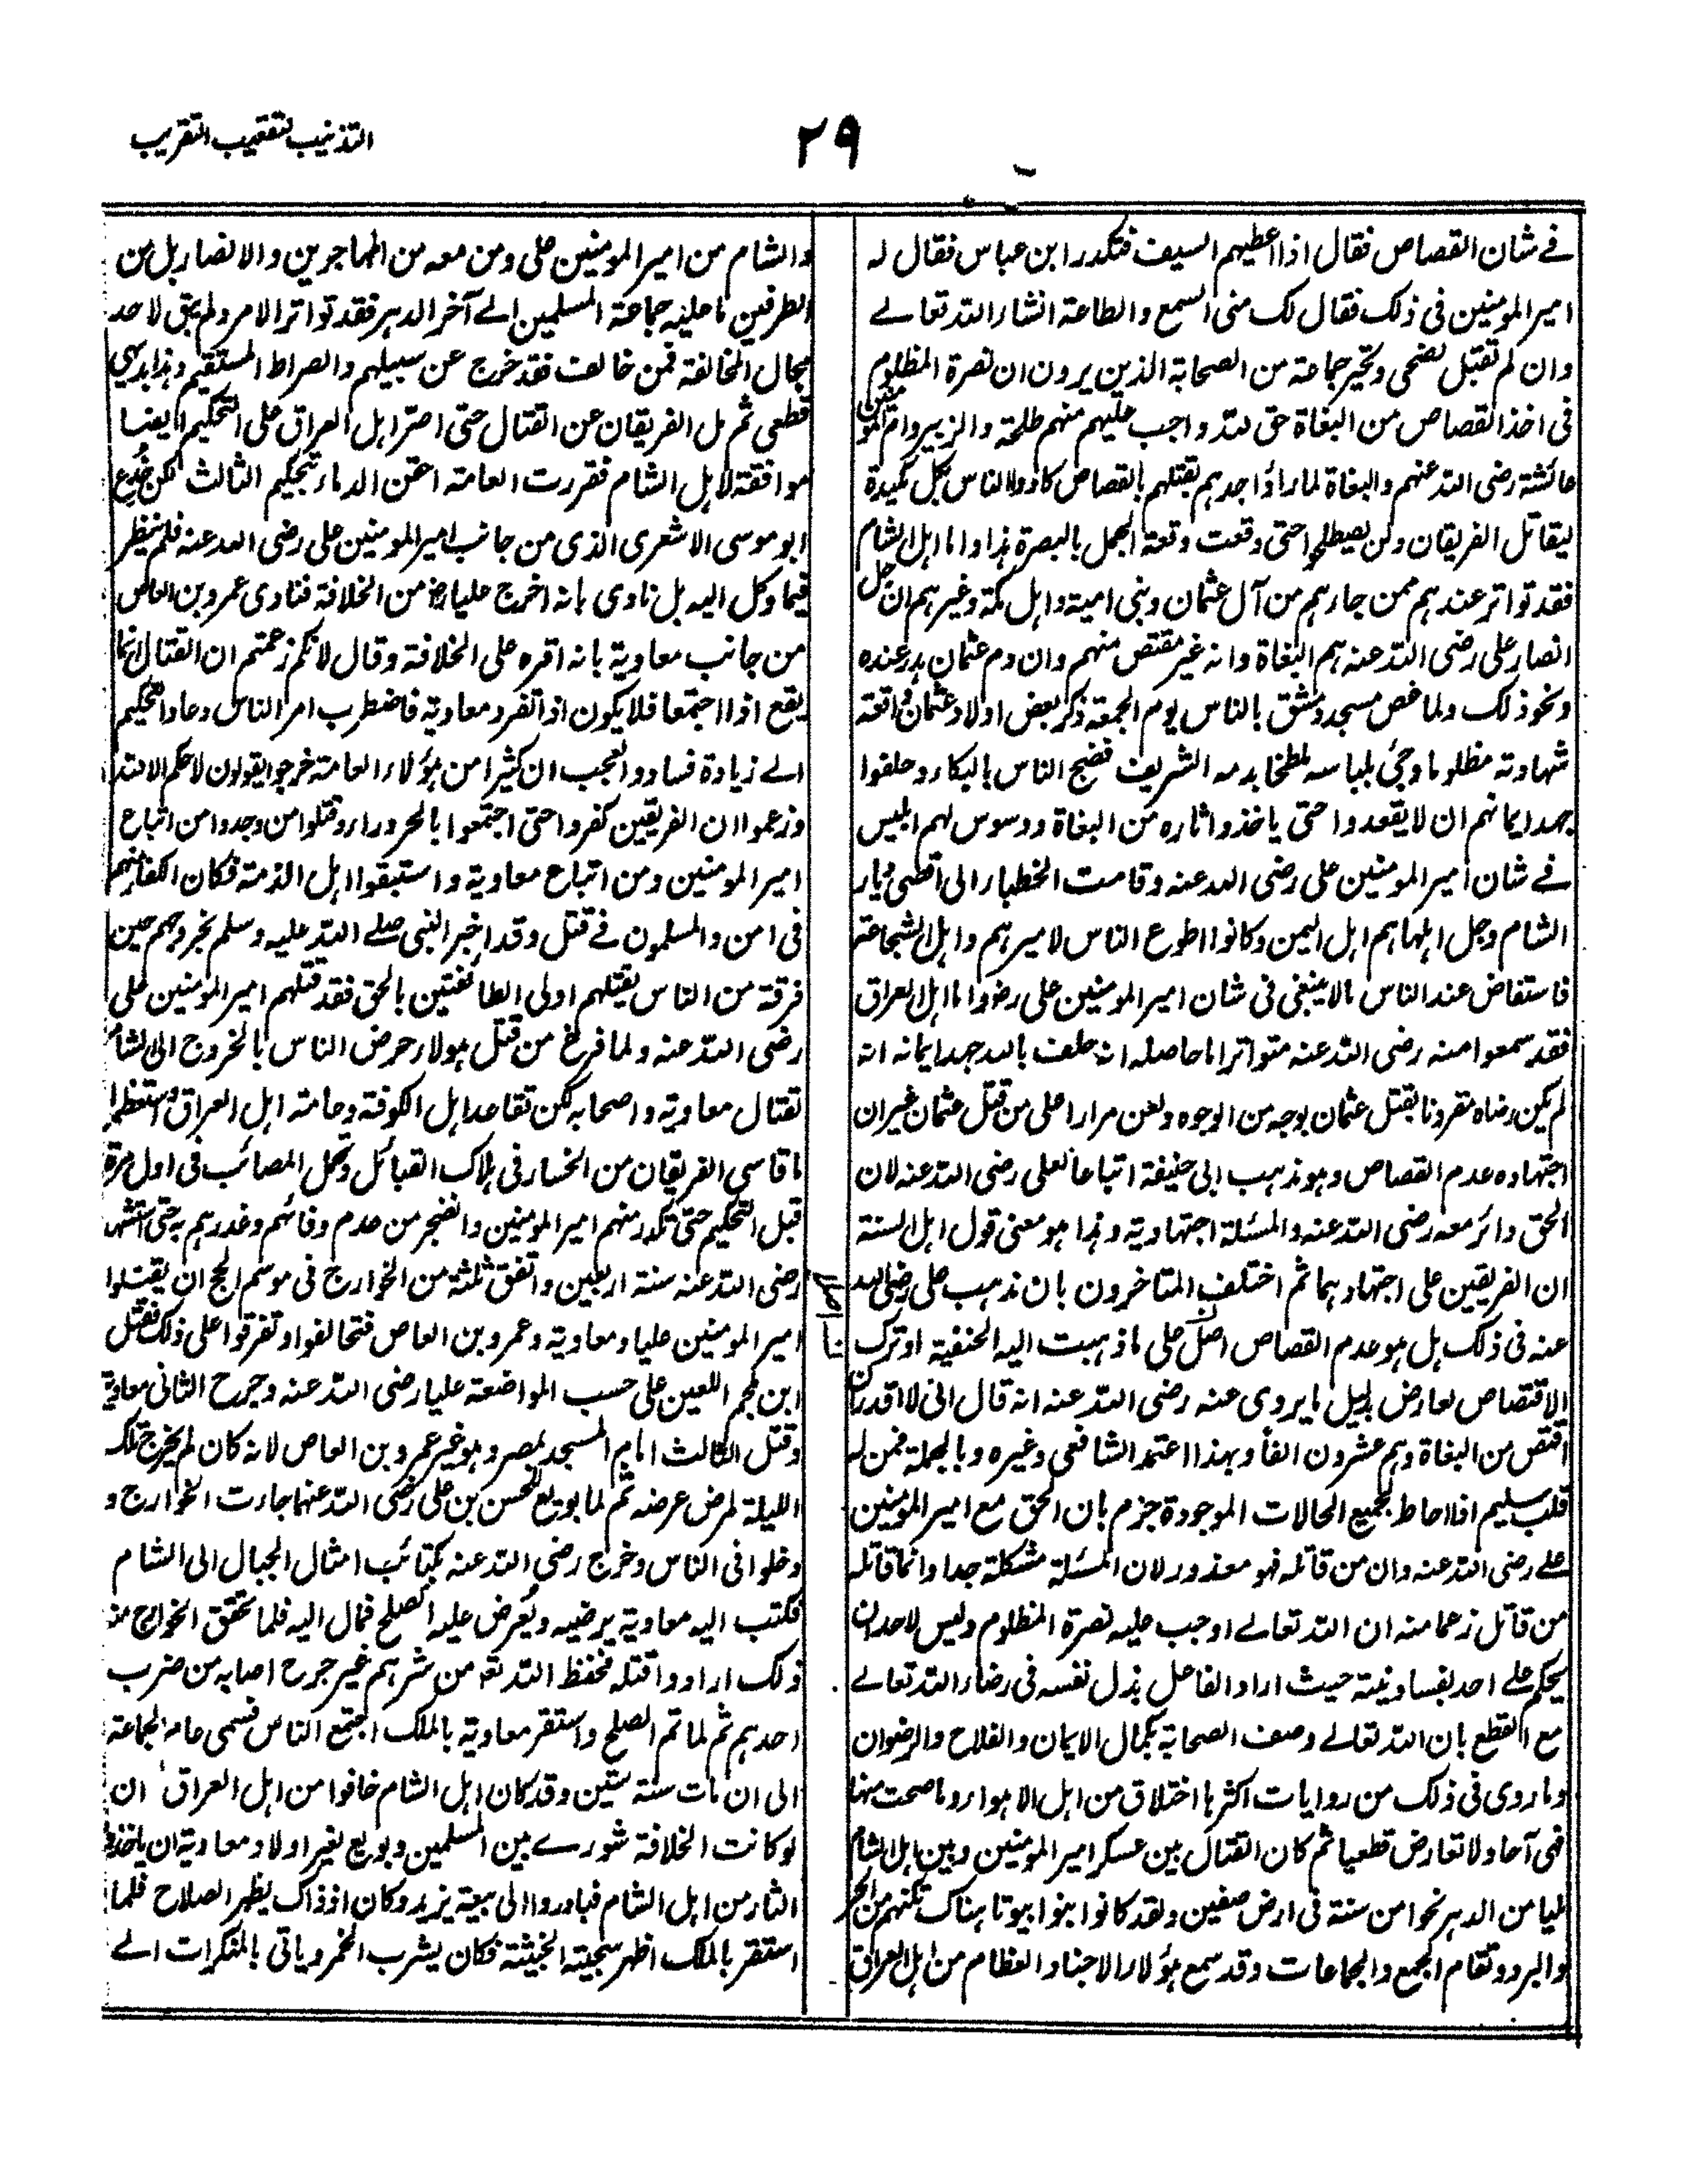 التذنيب لتعقيب التقريب
٢٩
فے شان القصاص فقال اذا اعطيهم السيف فتكدر ابن عباس فقال له
امير المومنين فى ذلك فقال لك منى السمع والطاعة انشاء الله تعالے
وان لم تقبل نصحى وتحير جماعة من الصحابة الذين يرون ان نصرة المظلوم
فى اخذ القصاص من البغاة حق لله واجب عليهم منهم طلحة والزبير وام المومنين
عائشة رضى الله عنهم والبغاة لما راؤا جدهم بقتلهم بالقصاص كادوا الناس بكل مكيدة
ليقاتل الفريقان ولن يصطلحوا حتى وقعت وقعة الجمل بالبصرة هذا واما اهل الشام
فقد تواتر عندهم ممن جارهم من آل عثمان وبنى امية واهل مكة وغيرهم ان جل
انصار على رضى الله عنه هم البغاة وانه غير مقتص منهم وان دم عثمان هدر عنده
ونحو ذلك ولما غص مسجد دمشق بالناس يوم الجمعة ذكر بعض اولاد عثمان واقعة
شهادته مظلوما وجئ بلباسه لطخا بدمه الشريف فضج الناس بالبكاء وحلفوا
جهد ايمانهم ان لا يقعدوا حتى ياخذوا ثاره من البغاة ووسوس لهم ابليس
فے شان امير المومنين على رضى الله عنه وقامت الخطباء الى اقصى ديار
الشام وجل اهلها هم اهل اليمن وكانوا اطوع الناس لاميرهم واهل الشجاعة
فاستفاض عند الناس مالا ينبغى فى شان امير المومنين على رضـ واما اهل العراق
فقد سمعوا منه رضى الله عنه متواترا ما حاصله انه حلف بالله جهد ايمانه انه
لم يكن رضاه مقرونا بقتل عثمان بوجه من الوجوه ولعن مرارا على من قتل عثمان غير ان
اجتهاده عدم القصاص وهو مذهب ابى حنيفة اتباعا لعلى رضى الله عنه لان
الحق دائر معه رضى الله عنه والمسئلة اجتهادية وهذا هو معنى قول اهل السنة
ان الفريقين على اجتهادهما ثم اختلف المتاخرون بان مذهب على رضى الله
عنه فى ذلك هل هو عدم القصاص اصلا على ما ذهبت اليه الحنفية او ترك
الاقتصاص لعارض بدليل ما يروى عنه رضى الله عنه انه قال انى لا اقدر ان
اقتص من البغاة وهم عشرون الفا وبهذا اعتمد الشافعى وغيره وبالجملة فمن له
قلب سليم اذا احاط بجميع الحالات الموجودة جزم بان الحق مع امير المومنين
على رضى الله عنه وان من قاتله فهو معذور لان المسئلة مشكلة جدا وانما قاتله
من قاتل زعما منه ان الله تعالے اوجب عليه نصرة المظلوم وليس لاحد ان
يحكم على احد بفساد نيته حيث اراد الفاعل بذل نفسه فى رضاء الله تعالے
مع القطع بان الله تعالے وصف الصحابة بكمال الايمان والفلاح والرضوان
وما روى فى ذلك من روايات اكثرها اختلاق من اهل الاهواء وما صحت منها
فهى آحاد لا تعارض قطعيا ثم كان القتال بين عسكر امير المومنين وبين اهل الشام
مليا من الدهر نحوا من سنة فى ارض صفين ولقد كانوا بنوا بيوتا هناك تكنهم من الحر
والبرد وتقام الجمع والجماعات وقد سمع هؤلاء الاجناد العظام من اهل العراق
والشام من امير المومنين على ومن معه من المهاجرين والانصار بل من
الطرفين ما عليه جماعة المسلمين الے آخر الدهر فقد تواتر الامر ولم يبق لاحد
مجال المخالفة فمن خالف فقد خرج عن سبيلهم والصراط المستقيم وهذا بديهى
قطعى ثم مل الفريقان عن القتال حتى اصر اهل العراق على التحكيم ايضا
موافقة لاهل الشام فقررت العامة احقن الدماء بتحكيم الثالث لكن خُدع
ابو موسى الاشعرى الذى من جانب امير المومنين على رضى الله عنه فلم ينظر
فيما وكل اليه بل نادى بانه اخرج عليا رضـ من الخلافة فنادى عمرو بن العاص
من جانب معاوية بانه اقره على الخلافة وقال لانكم زعمتم ان القتال انما
يقع اذا اجتمعا فلا يكون اذا تفرد معاوية فاضطرب امر الناس وعاد التحكيم
الے زيادة فساد والعجب ان كثيرا من هؤلاء العامة خرجوا يقولون لا حكم الا لله
وزعموا ان الفريقين كفروا حتى اجتمعوا بالحروراء وقتلوا من وجدوا من اتباع
امير المومنين ومن اتباع معاوية واستبقوا اهل الذمة فكان الكفار منهم
فى امن والمسلمون فے قتل وقد اخبر النبى صلے الله عليه وسلم بخروجهم حين
فرقة من الناس يقتلهم اولى الطائفتين بالحق فقد قتلهم امير المومنين على
رضى الله عنه ولما فرغ من قتل هولاء حرض الناس بالخروج الى الشام
لقتال معاوية واصحابه لكن تقاعد اهل الكوفة وعامة اهل العراق واستعظموا
ما قاسى الفريقان من الخسار فى هلاك القبائل وتحمل المصائب فى اول مرة
قبل التحكيم حتى تكدر منهم امير المومنين وانضجر من عدم وفائهم وغدرهم به حتى استشهد
رضى الله عنه سنة اربعين واتفق ثلثة من الخوارج فى موسم الحج ان يقتلوا
امير المومنين عليا ومعاوية وعمرو بن العاص فتحالفوا وتفرقوا على ذلك فقتل
ابن ملجم اللعين على حسب المواضعة عليا رضى الله عنه وجرح الثانى معاوية
وقتل الثالث امام المسجد بمصر وهو غير عمرو بن العاص لانه كان لم يخرج تلك
الليلة لمرض عرضه ثم لما بويع للحسن بن على رضى الله عنهما جاءت الخوارج و
دخلوا فى الناس وخرج رضى الله عنه بكتائب امثال الجبال الى الشام
فكتب اليه معاوية يرضيه ويُعرض عليه الصلح فمال اليه فلما تحقق الخوارج منه
ذلك ارادوا قتله فحفظ الله تعـ من شرهم غير جرح اصابه من ضرب
احدهم ثم لما تم الصلح واستقر معاوية بالملك اجتمع الناس فسمى عام الجماعة
الى ان مات سنة ستين وقد كان اهل الشام خافوا من اهل العراق ان
لو كانت الخلافة شورے بين المسلمين وبويع لغير اولاد معاوية ان ياخذوا
الثار من اهل الشام فبادروا الى بيعة يزيد وكان اذ ذاك يظهر الصلاح فلما
استقر بالملك اظهر سجيته الخبيثة فكان يشرب الخمر وياتى بالمنكرات الے